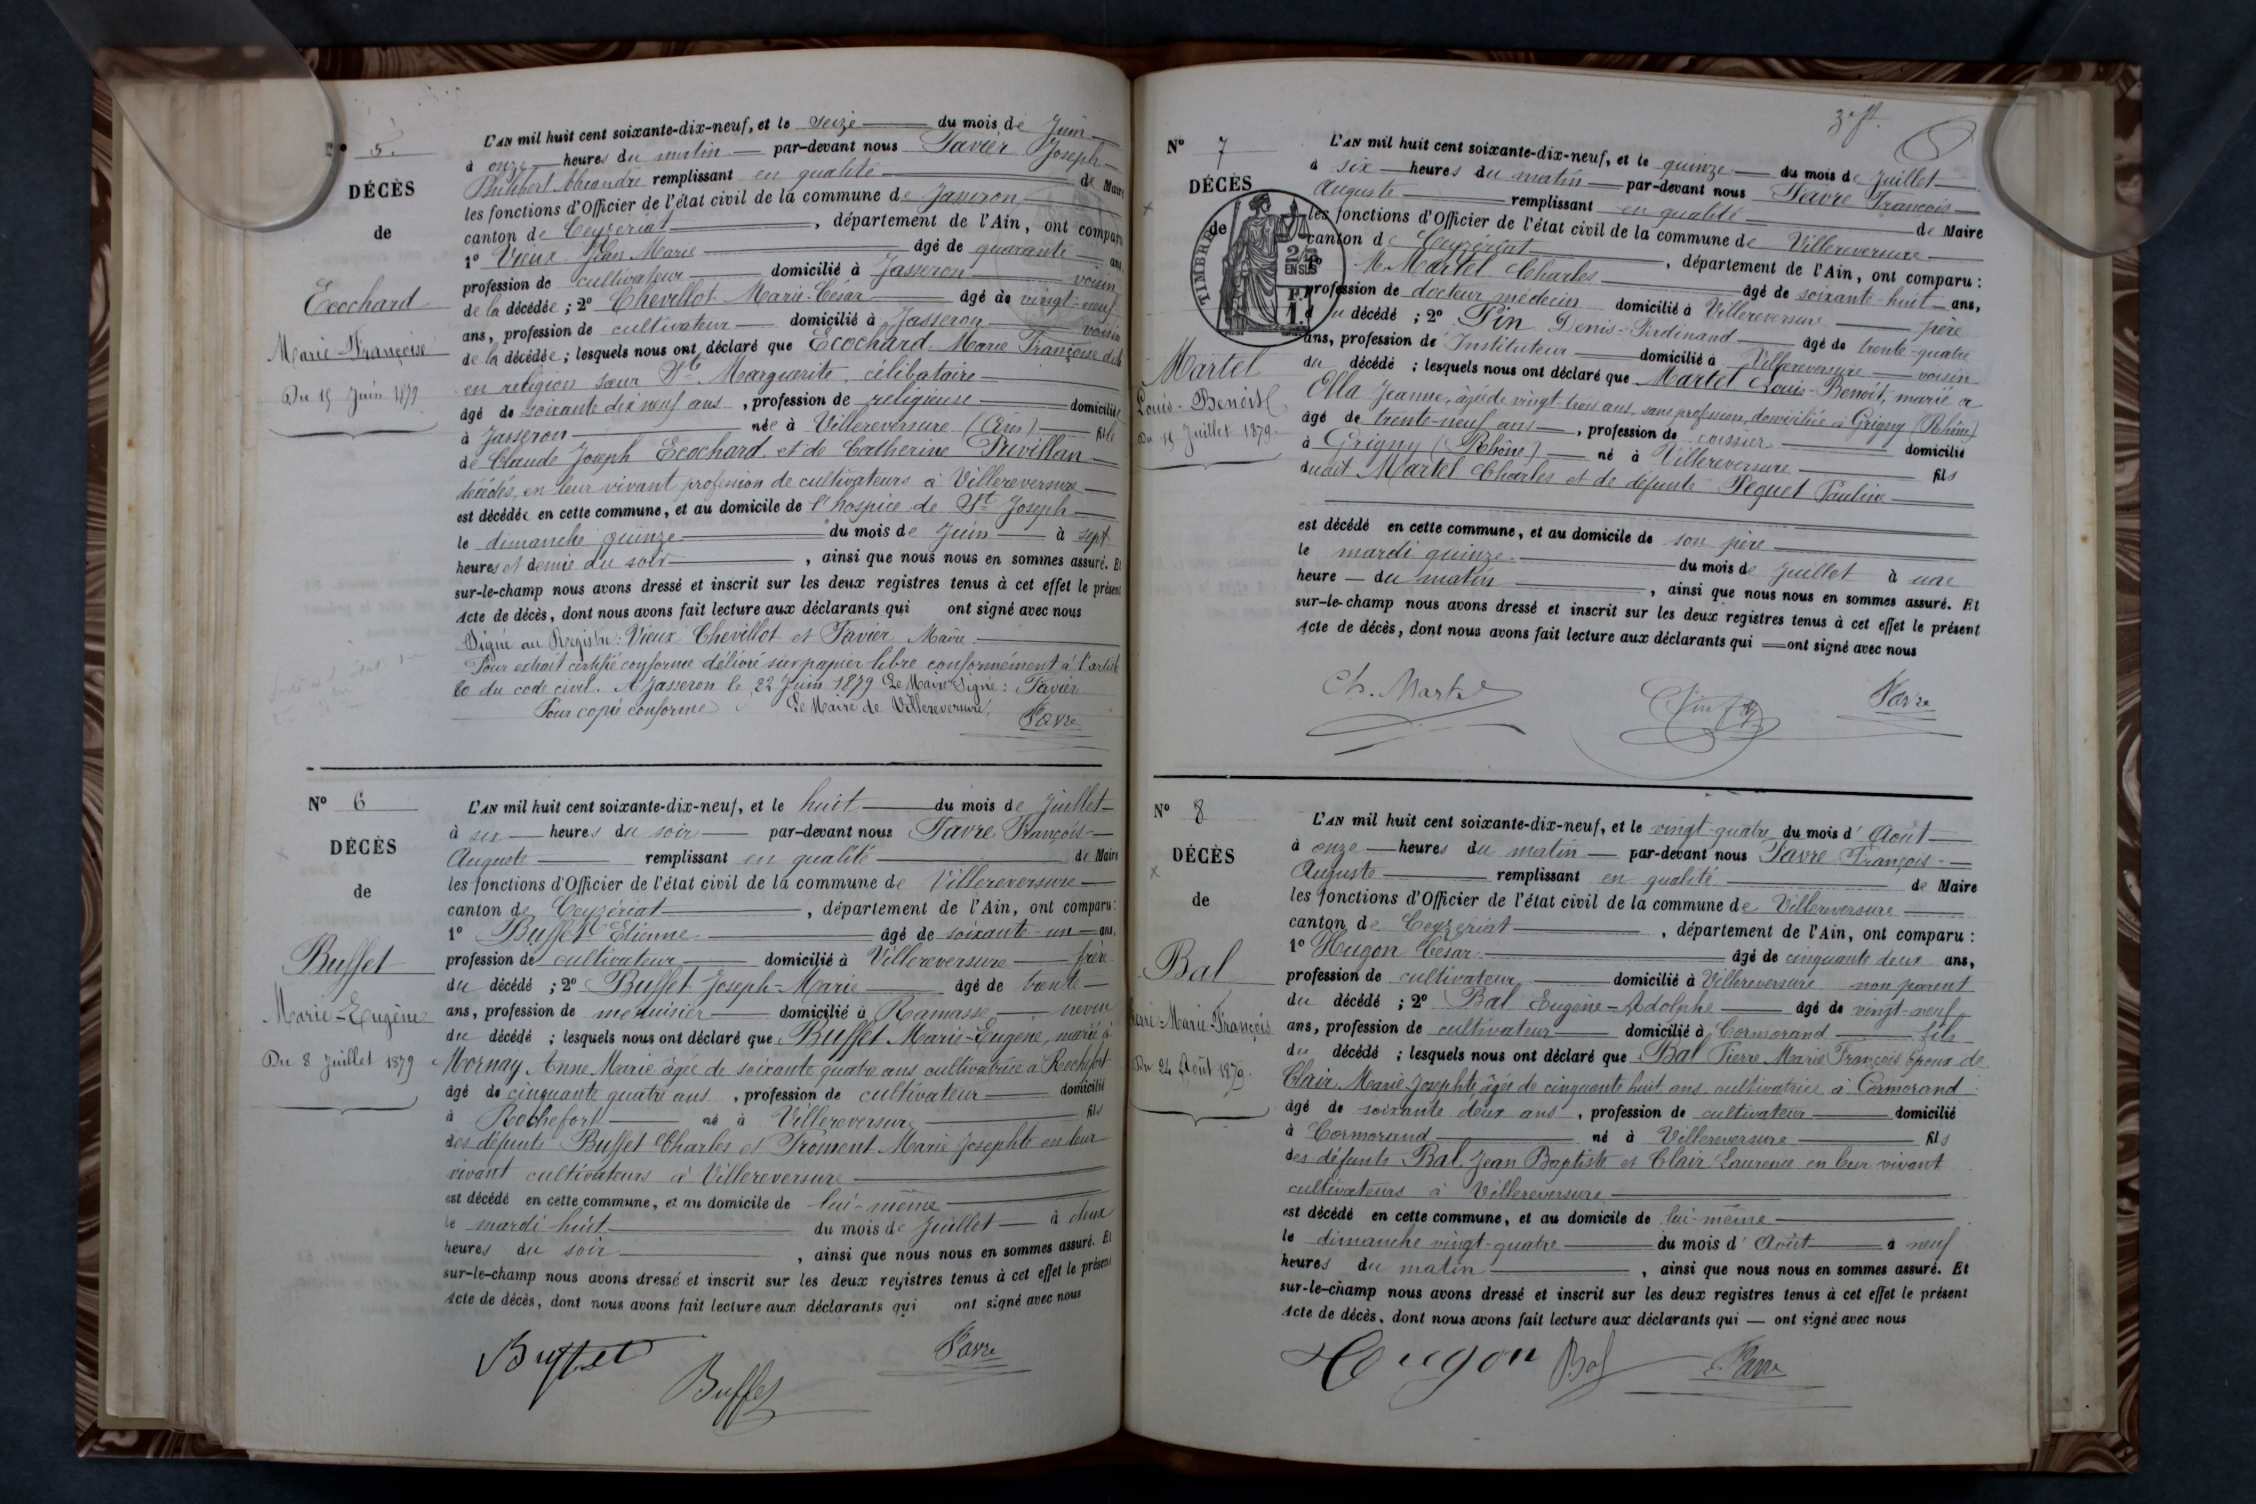 N° 5.
DÉCÈS
de
Ecochard
Marie-Françoise
Du 15 Juin 1879
L'AN mil huit cent soixante-dix-neuf, et le seize du mois de Juin
à onze heures du matin par-devant nous Favier Joseph
Philibert Alexandre remplissant en qualité de Maire
les fonctions d'Officier de l'état civil de la commune de Jasseron
canton de Ceyzériat, département de l'Ain, ont comparu
1° Vieux Jean Marie âgé de quarante ans,
profession de cultivateur domicilié à Jasseron voisin
de la décédée ; 2° Chevillot Marie-César âgé de vingt-neuf
ans, profession de cultivateur domicilié à Jasseron voisin
de la décédée ; lesquels nous ont déclaré que Ecochard Marie Françoise dite
en religion sœur Ste Marguerite, célibataire
âgé de soixante dix neuf ans, profession de religieuse domicilié
à Jasseron née à Villereversure (Ain) fille
de Claude Joseph Ecochard et de Catherine Privillan
décédés, en leur vivant profession de cultivateurs à Villereversure
est décédée en cette commune, et au domicile de l'hospice de St Joseph
le dimanche quinze du mois de Juin à sept
heures et demie du soir, ainsi que nous nous en sommes assuré. Et
sur-le-champ nous avons dressé et inscrit sur les deux registres tenus à cet effet le présent
Acte de décès, dont nous avons fait lecture aux déclarants qui ont signé avec nous
Signé au Registre : Vieux Chevillot et Favier Maire
Pour extrait certifié conforme délivré sur papier libre conformément à l'article
80 du code civil. A Jasseron le 22 Juin 1879 Le Maire Signé : Favier
Pour copie conforme Le Maire de Villereversure,
Favre
N° 6
DÉCÈS
de
Buffet
Marie-Eugène
Du 8 Juillet 1879
L'AN mil huit cent soixante-dix-neuf, et le huit du mois de Juillet
à six heures du soir par-devant nous Favre François
Auguste remplissant en qualité de Maire
les fonctions d'Officier de l'état civil de la commune de Villereversure
canton de Ceyzériat, département de l'Ain, ont comparu :
1° Buffet Etienne âgé de soixante-un ans,
profession de cultivateur domicilié à Villereversure frère
du décédé ; 2° Buffet Joseph-Marie âgé de trente
ans, profession de menuisier domicilié à Ramasse neveu
du décédé ; lesquels nous ont déclaré que Buffet Marie-Eugène, marié à
Mornay Anne Marie âgée de soixante quatre ans cultivatrice à Rochefort
âgé de cinquante quatre ans, profession de cultivateur domicilié
à Rochefort né à Villereversure fils
des défunts Buffet Charles et Froment Marie Josephte en leur
vivant cultivateurs à Villereversure
est décédé en cette commune, et au domicile de lui-même
le mardi huit du mois de Juillet à deux
heures du soir, ainsi que nous nous en sommes assuré. Et
sur-le-champ nous avons dressé et inscrit sur les deux registres tenus à cet effet le présent
Acte de décès, dont nous avons fait lecture aux déclarants qui ont signé avec nous
Buffet
Buffet
Favre
3e ft.
N° 7
DÉCÈS
de
TIMBRE
2/10
EN SUS
Martel
Louis-Benoist
Du 15 Juillet 1879.
L'AN mil huit cent soixante-dix-neuf, et le quinze du mois de Juillet
à six heures du matin par-devant nous Favre François
Auguste remplissant en qualité de Maire
les fonctions d'Officier de l'état civil de la commune de Villereversure
canton de Ceyzériat, département de l'Ain, ont comparu :
1° M. Martel Charles âgé de soixante-huit ans,
profession de docteur médecin domicilié à Villereversure père
du décédé ; 2° Pin Denis-Ferdinand âgé de trente-quatre
ans, profession de Instituteur domicilié à Villereversure voisin
du décédé ; lesquels nous ont déclaré que Martel Louis-Benoit, marié à
Olla Jeanne, âgée de vingt trois ans, sans profession, domiciliée à Grigny (Rhône)
âgé de trente-neuf ans, profession de caissier domicilié
à Grigny (Rhône) né à Villereversure fils
dudit Martel Charles et de défunte Peguet Pauline
est décédé en cette commune, et au domicile de son père
le mardi quinze du mois de Juillet à une
heure du matin, ainsi que nous nous en sommes assuré. Et
sur-le-champ nous avons dressé et inscrit sur les deux registres tenus à cet effet le présent
Acte de décès, dont nous avons fait lecture aux déclarants qui ont signé avec nous
Ch. Martel
Pin
Favre
N° 8
DÉCÈS
de
Bal
Pierre-Marie-François
Du 24 Août 1879.
L'AN mil huit cent soixante-dix-neuf, et le vingt-quatre du mois d'Août
à onze heures du matin par-devant nous Favre François
Auguste remplissant en qualité de Maire
les fonctions d'Officier de l'état civil de la commune de Villereversure
canton de Ceyzériat, département de l'Ain, ont comparu :
1° Hugon César âgé de cinquante deux ans,
profession de cultivateur domicilié à Villereversure non parent
du décédé ; 2° Bal Eugène-Adolphe âgé de vingt-neuf
ans, profession de cultivateur domicilié à Cormorand fils
du décédé ; lesquels nous ont déclaré que Bal Pierre Marie François époux de
Clair Marie Josephte âgée de cinquante huit ans cultivatrice à Cormorand
âgé de soixante deux ans, profession de cultivateur domicilié
à Cormorand né à Villereversure fils
des défunts Bal Jean Baptiste et Clair Laurence en leur vivant
cultivateurs à Villereversure
est décédé en cette commune, et au domicile de lui-même
le dimanche vingt-quatre du mois d'Août à neuf
heures du matin, ainsi que nous nous en sommes assuré. Et
sur-le-champ nous avons dressé et inscrit sur les deux registres tenus à cet effet le présent
Acte de décès, dont nous avons fait lecture aux déclarants qui ont signé avec nous
Hougon Bal Favre